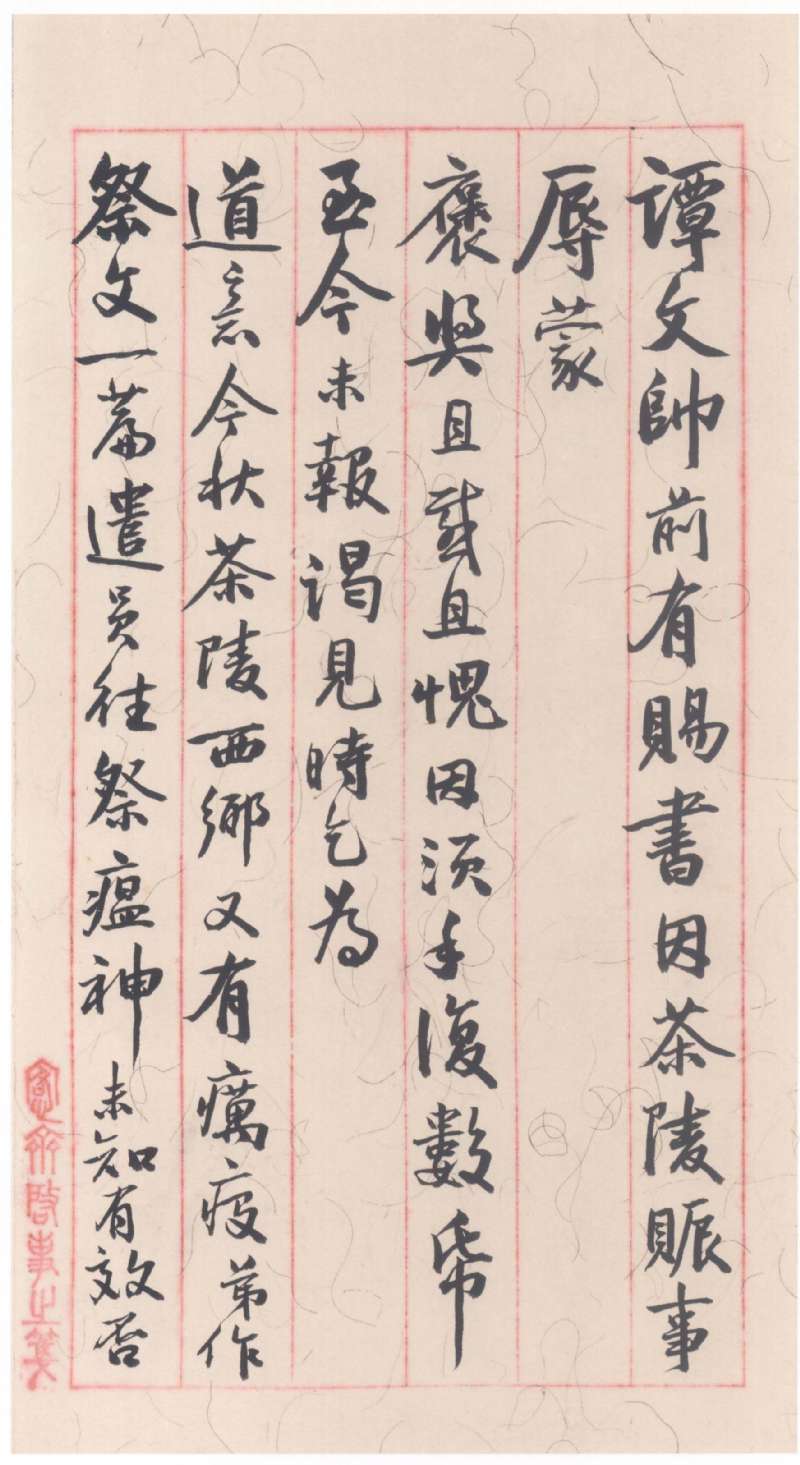 譚文帥前有賜書因茶陵賑事
辱蒙
褒獎且感且愧因須手復數紙
至今未報謁見時乞為
道意今秋茶陵西鄉又有癘疫弟作
祭文一篇遣員往祭瘟神未知有效否
愙齋啓事之箋